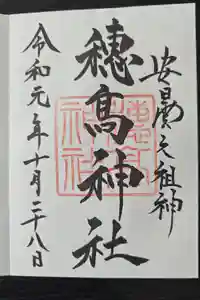 安曇之祖神
穂高神社
令和元年十月二十八日